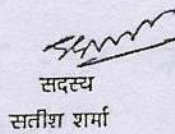 सदस्य
सतीश शर्मा